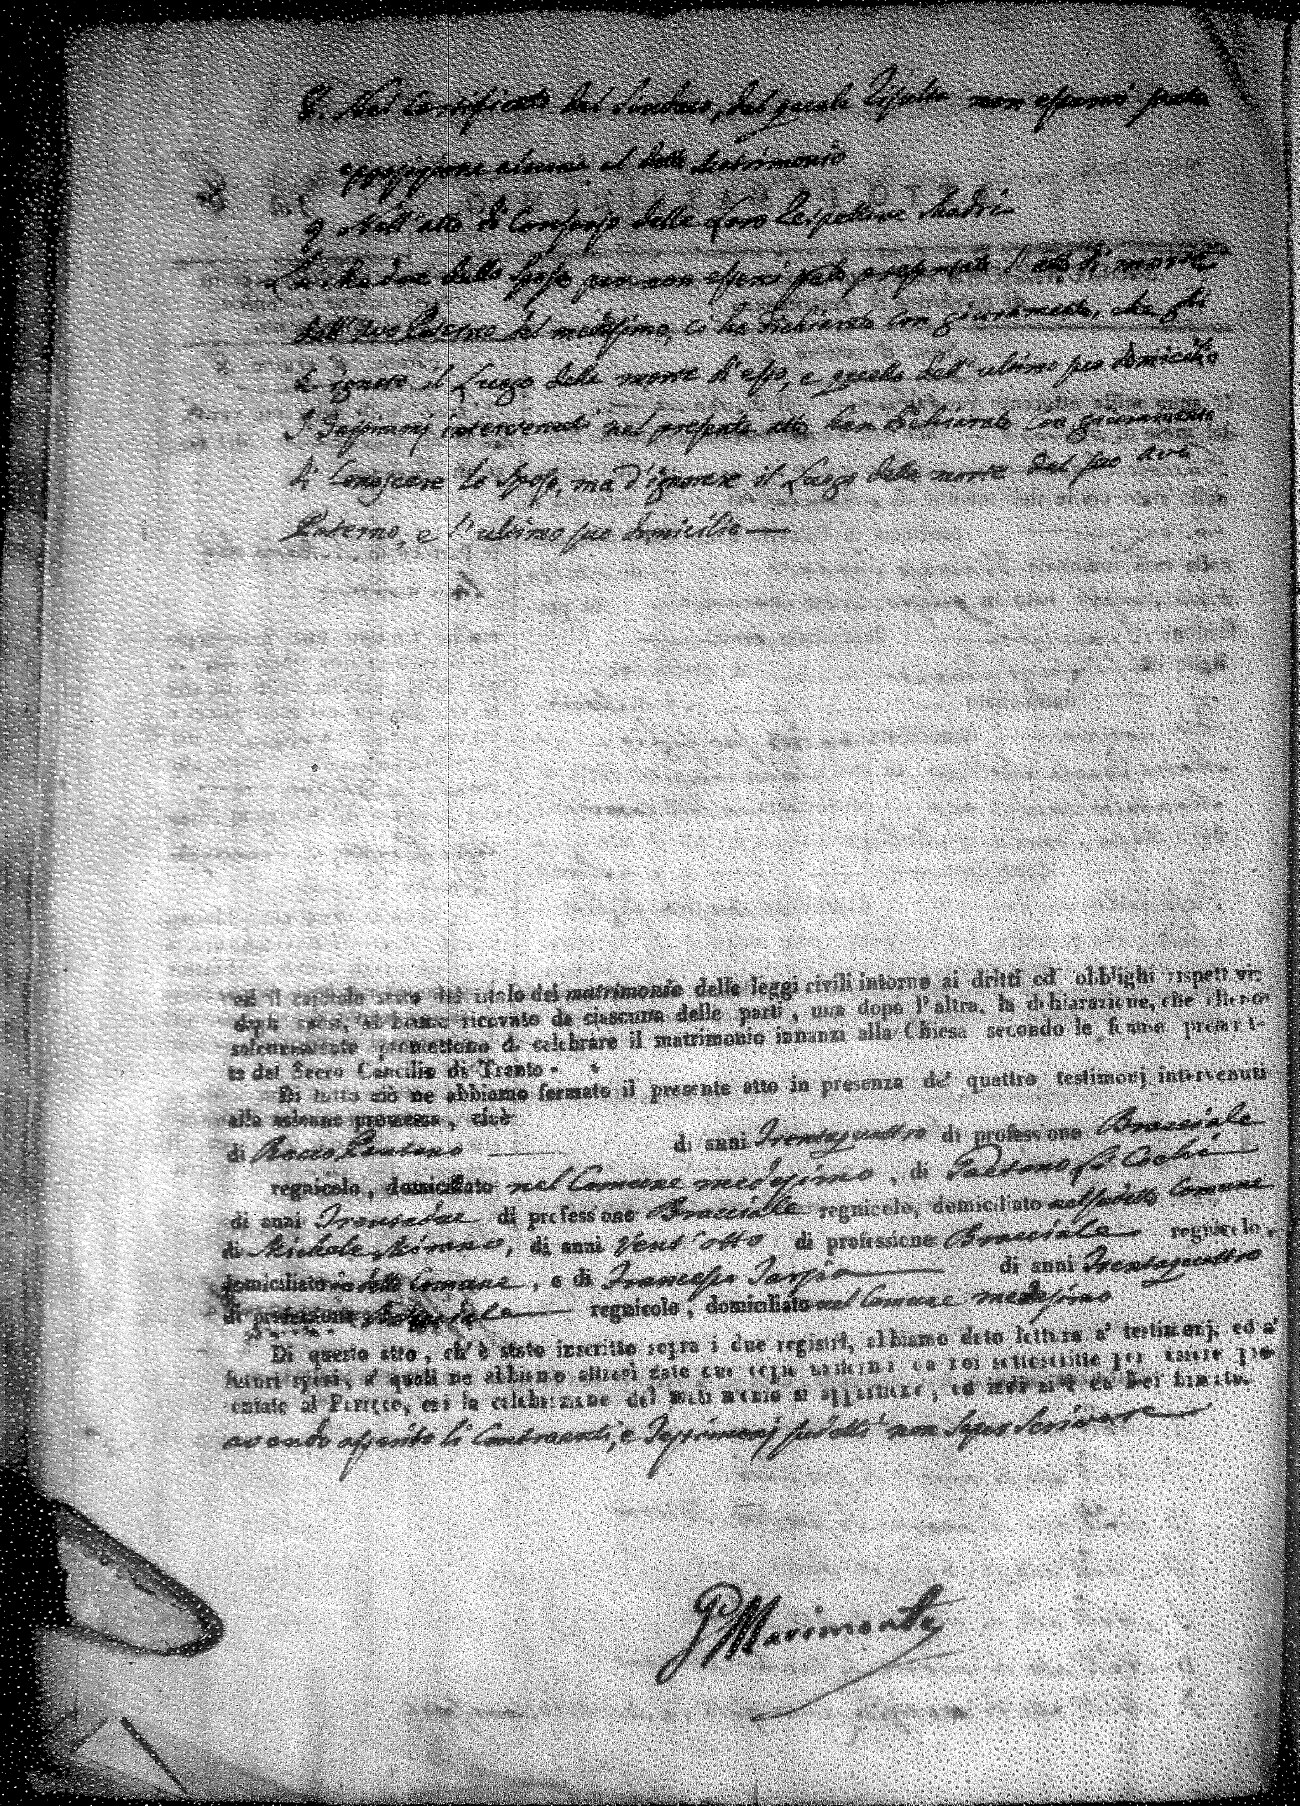 8. Nel Certificato del Sindaco, dal quale risulta non essersi fatta
opposizione alcuna al detto matrimonio
9 Nell'atto di Consenso delle Loro rispettive Madri
La Madre dello Sposo per non essersi potuto presentare l'atto di morte
dell'Avo Paterno del medesimo, ci ha dichiarato con giuramento, che gli
è ignoto il Luogo della morte d'esso, e quello dell'ultimo suo domicilio
I Tesimonj intervenuti nel presente atto han dichiarato con giuramento
di Conoscere lo Sposo, ma d'ignorare il Luogo della morte del suo avo
Paterno, e l'ultimo suo domicilio
ed il capitolo sesto del titolo del matrimonio delle leggi civili intorno ai dritti ed obblighi rispettivi
degli sposi, abbiamo ricevuto da ciascuna delle parti, una dopo l'altra, la dichiarazione, che elleno
solennemente promettono di celebrare il matrimonio innanzi alla Chiesa secondo le forme prescrit-
te dal Sacro Concilio di Trento.
Di tutto ciò ne abbiamo formato il presente atto in presenza de' quattro testimonj intervenuti
alla solenne promessa, cioè
di Rocco Pantano di anni Trentaquattro di professione Bracciale
regnicolo, domiciliato nel Comune medesimo, di Gaetano
di anni Trentadue di professione Bracciale regnicolo, domiciliato nel sudetto Comune
di Michele Miranco, di anni Vent'otto di professione Bracciale regnicolo,
domiciliato in detto Comune, e di Francesco di anni Trentaquattro
di professione Bracciale regnicolo, domiciliato nel Comune medesimo
Di questo atto, ch'è stato inscritto sopra i due registri, abbiamo dato lettura a' testimonj, ed a'
futuri sposi, a' quali ne abbiamo altresì date due copie uniformi da noi sottoscritte per essere pre-
sentate al Parroco, cui la celebrazione del matrimonio si appartiene, ed indi si è da noi firmato.
avendo asserito li Contraenti, e Tesimonj sudetti non saper scrivere